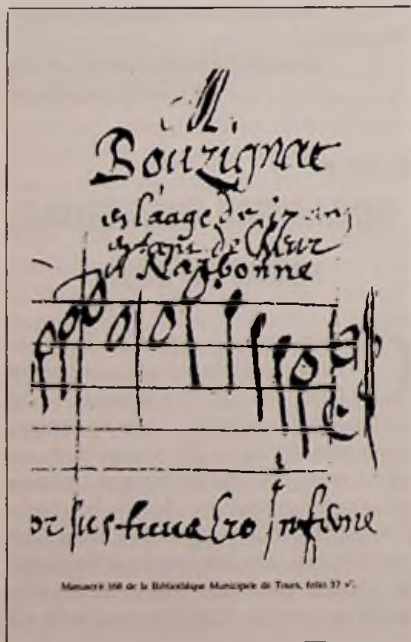 M.
Bouzignac
en l'aage de 17 ans
enfant de Cœur
a Narbonne
or sustinuero in fine
Manuscrit 168 de la Bibliothèque Municipale de Tours, folio 37 v°.